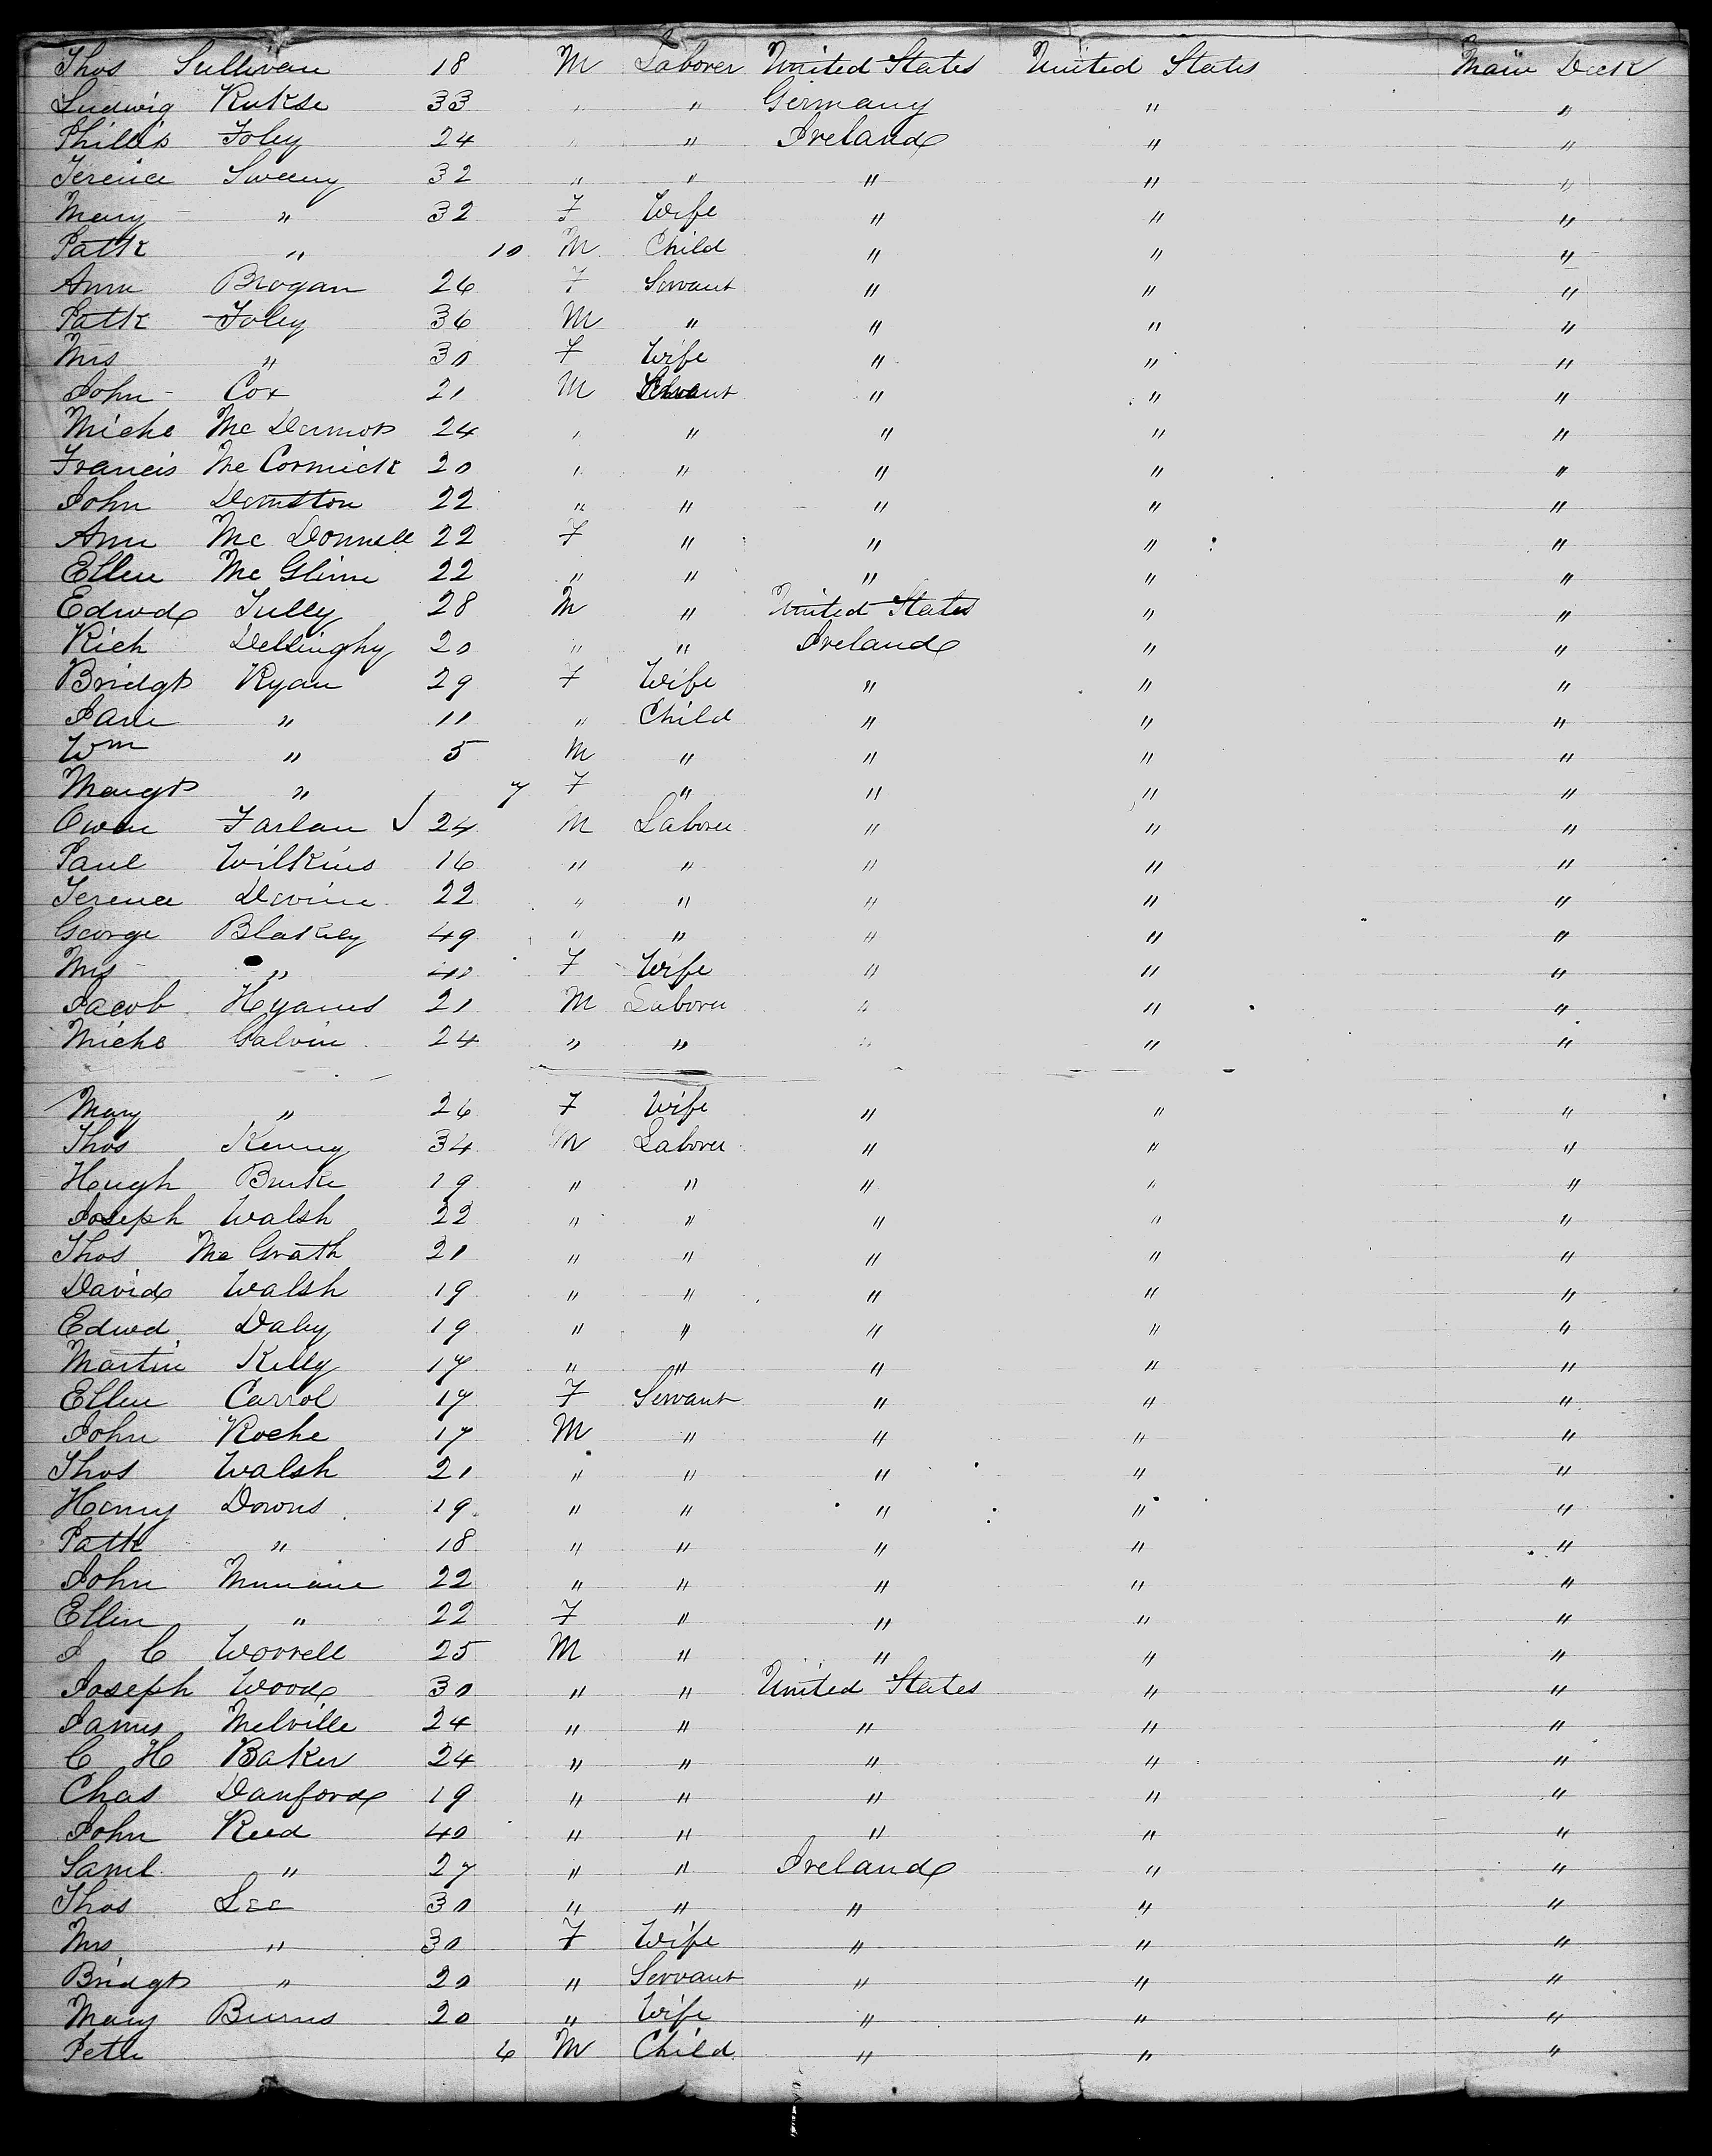 Thos Sullivan 18 M Laborer United States United States Main Deck
Ludwig Rukse 33 " " Germany " "
Phillip Foley 24 " " Ireland " "
Terence Sweeny 32 " " " " "
Mary " 32 F Wife " " "
Patk " 10 M Child " " "
Ann Brogan 26 F Servant " " "
Patk Foley 36 M " " " "
Mrs " 30 F Wife " " "
John Cox 21 M Servant " " "
Michl Mc Dermot 24 " " " " "
Francis Mc Cormick 20 " " " " "
John 22 " " " " "
Ann Mc Donnell 22 F " " " "
Ellen Mc Glinn 22 " " " " "
Edwd Tully 28 M " United States " "
Rich 20 " " Ireland " "
Bridgt Ryan 29 F Wife " " "
Jane " 11 " Child " " "
Wm " 5 M " " " "
Margt " 7 F " " " "
Owen Farlan 24 M Laborer " " "
Paul Wilkins 16 " " " " "
Terence Devine 22 " " " " "
George Blakely 49 " " " " "
Mrs " 40 F Wife " " "
Jacob Hyams 21 M Laborer " " "
Michl Galvin 24 " " " " "
Mary " 26 F Wife " " "
Thos Kenny 34 M Laborer " " "
Hugh Burke 19 " " " " "
Joseph Walsh 22 " " " " "
Thos Mc Grath 21 " " " " "
David Walsh 19 " " " " "
Edwd Daly 19 " " " " "
Martin Kelly 17 " " " " "
Ellen Carrol 17 F Servant " " "
John Roche 17 M " " " "
Thos Walsh 21 " " " " "
Henry Downs 19 " " " " "
Patk " 18 " " " " "
John 22 " " " " "
Ellen " 22 F " " " "
J C Worrell 25 M " " " "
Joseph Wood 30 " " United States " "
James Melville 24 " " " " "
C H Baker 24 " " " " "
Chas Danford 19 " " " " "
John Reed 40 " " " " "
Saml " 27 " " Ireland " "
Thos Lee 30 " " " " "
Mrs " 30 F Wife " " "
Bridgt " 20 " Servant " " "
Mary Burns 20 " Wife " " "
Peter 6 M Child " " "